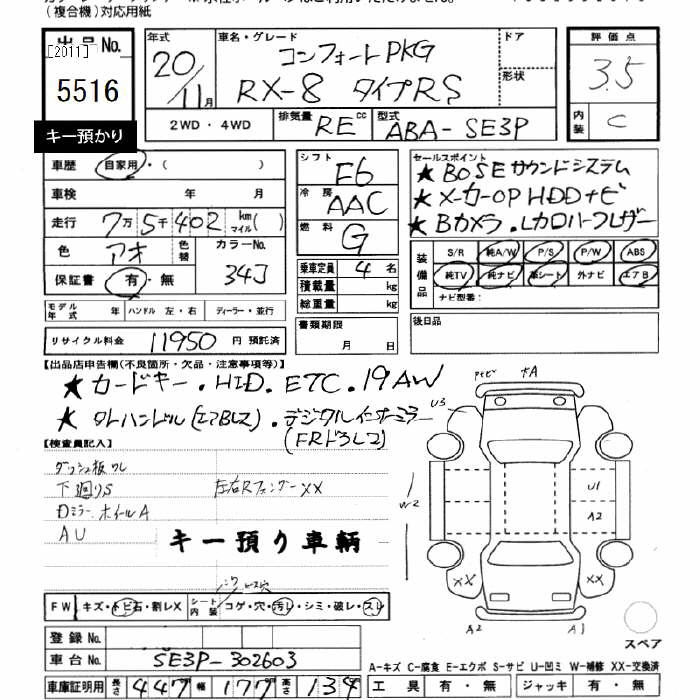 (複合機)対応用紙
出品No.
[2011]
5516
キー預かり
年式
20/11月
車名・グレード
コンフォートPKG
RX-8 タイプRS
ドア
形状
評価点
3.5
内装
C
2WD・4WD
排気量
RE cc
型式
ABA-SE3P
車歴 自家用・( )
車検 年 月
走行 7万5千402 km マイル( )
色 アオ
色替
カラーNo.
34J
保証書 有・無
シフト
F6
冷房
AAC
燃料
G
乗車定員 4名
積載量 kg
総重量 kg
セールスポイント
★BOSEサウンドシステム
★メーカーOP HDDナビ
★Bカメラ.Lカロハーフレザー
装備品
S/R 純A/W P/S P/W ABS
純TV 純ナビ 革シート 外ナビ エアB
ナビ型番:
モデル年式 年 ハンドル 左・右 ディーラー・並行
リサイクル料金 11950 円 預託済
書類期限
月 日
後日品
【出品店申告欄(不良箇所・欠品・注意事項等)】
★カードキー.HID.ETC.19AW
(FRドラレコ)
【検査員記入】
ダッシュ板ワレ
下廻りS
左右Rフェンダーxx
Dミラー.ホイールA
AU
キー預り車輌
FW キズ・トビ石・割レX
シート内装 コゲ・穴・汚レ・シミ・破レ・スレ
登録No.
車台No. SE3P-302603
車庫証明用 長さ 447 幅 177 高さ 134
U3
A
W-2
U1
A2
xx
xx
A2
A1
スペア
A-キズ C-腐食 E-エクボ S-サビ U-凹ミ W-補修 XX-交換済
工具 有・無 ジャッキ 有・無